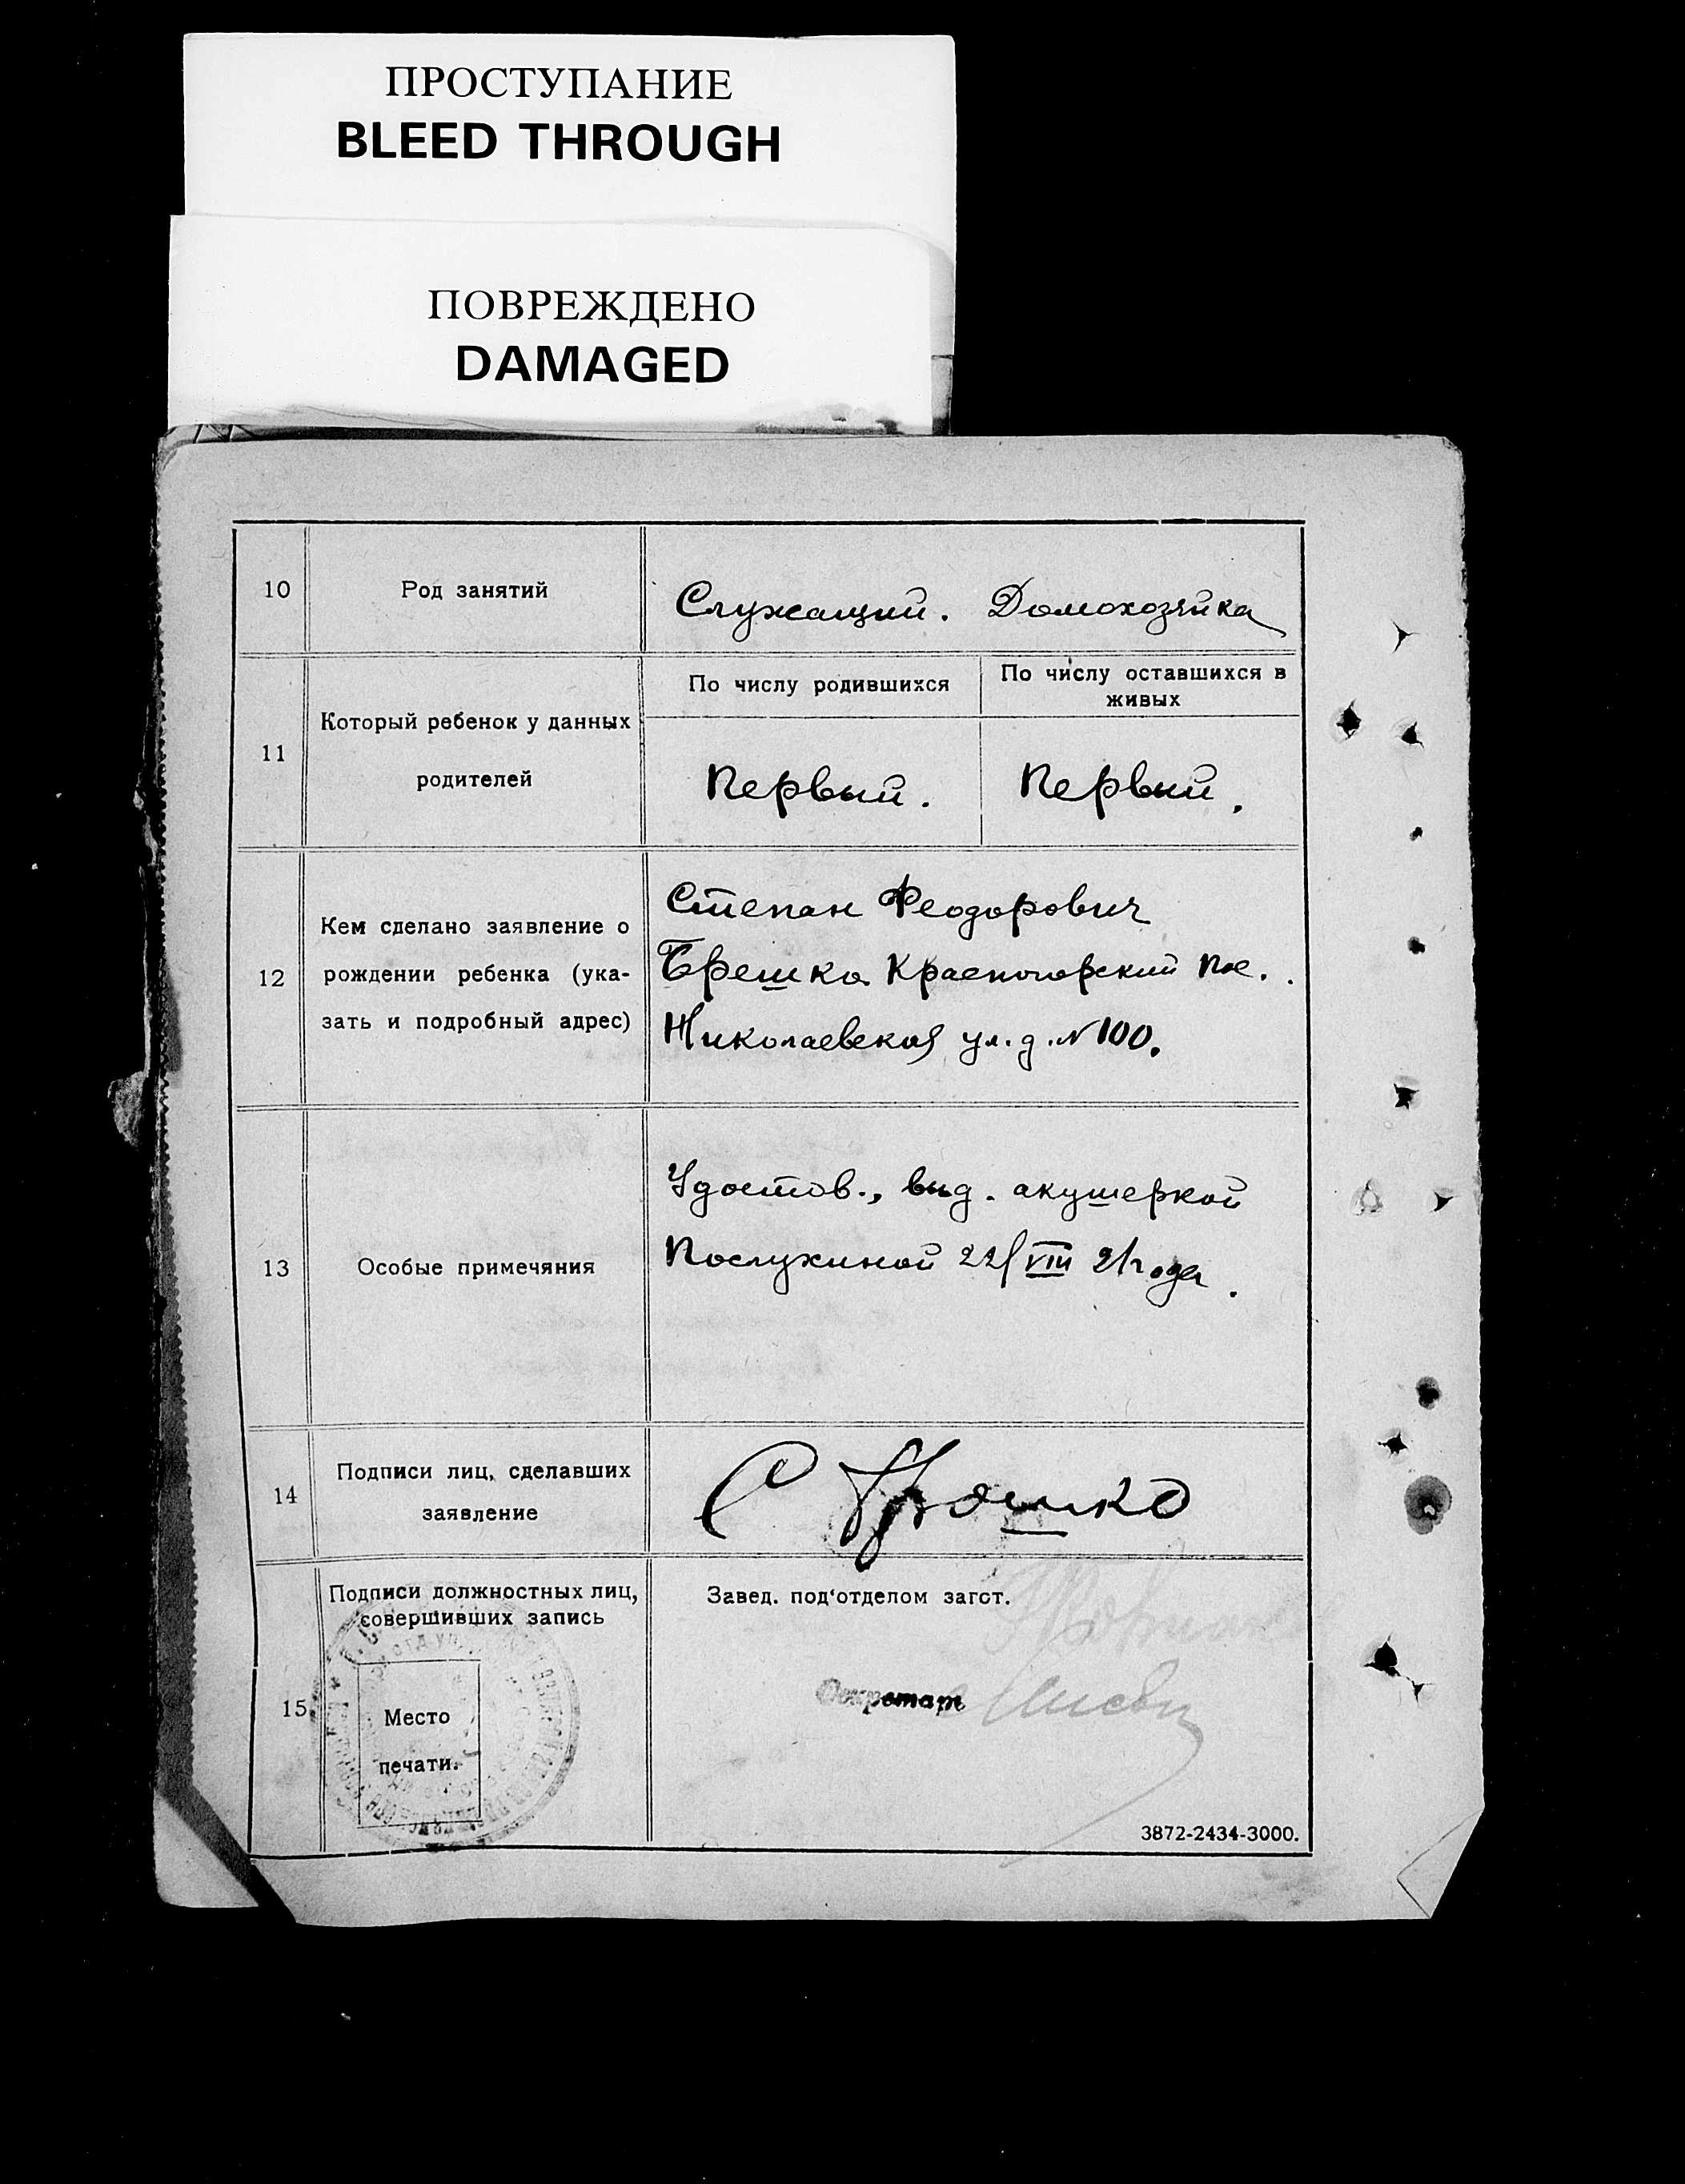 ПРОСТУПАНИЕ
BLEED THROUGH
ПОВРЕЖДЕНО
DAMAGED
10
Род занятий
Служащий. Домохозяйка
11
Который ребенок у данных
родителей
По числу родившихся
По числу оставшихся в
живых
Первый.
Первый.
12
Кем сделано заявление о
рождении ребенка (ука-
зать и подробный адрес)
Степан Феодорович
Брешко Красногорский пос.
Николаевская ул. д. № 100.
13
Особые примечяния
Удостов., выд. акушеркой
Послухиной 22/VIII 21 года.
14
Подписи лиц, сделавших
заявление
С Брешко
15
Подписи должностных лиц,
совершивших запись
Место
печати.
Завед. под'отделом загст.
Секретарь
3872-2434-3000.